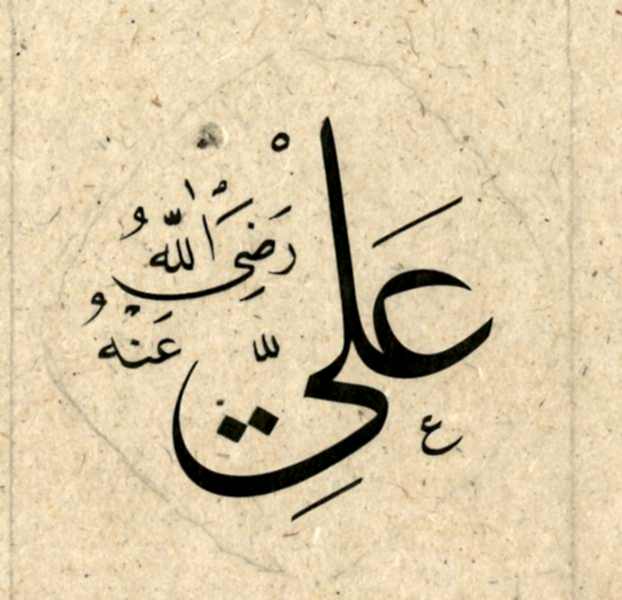 عَلِيّ
رَضِيَ اللّٰهُ
عَنْهُ